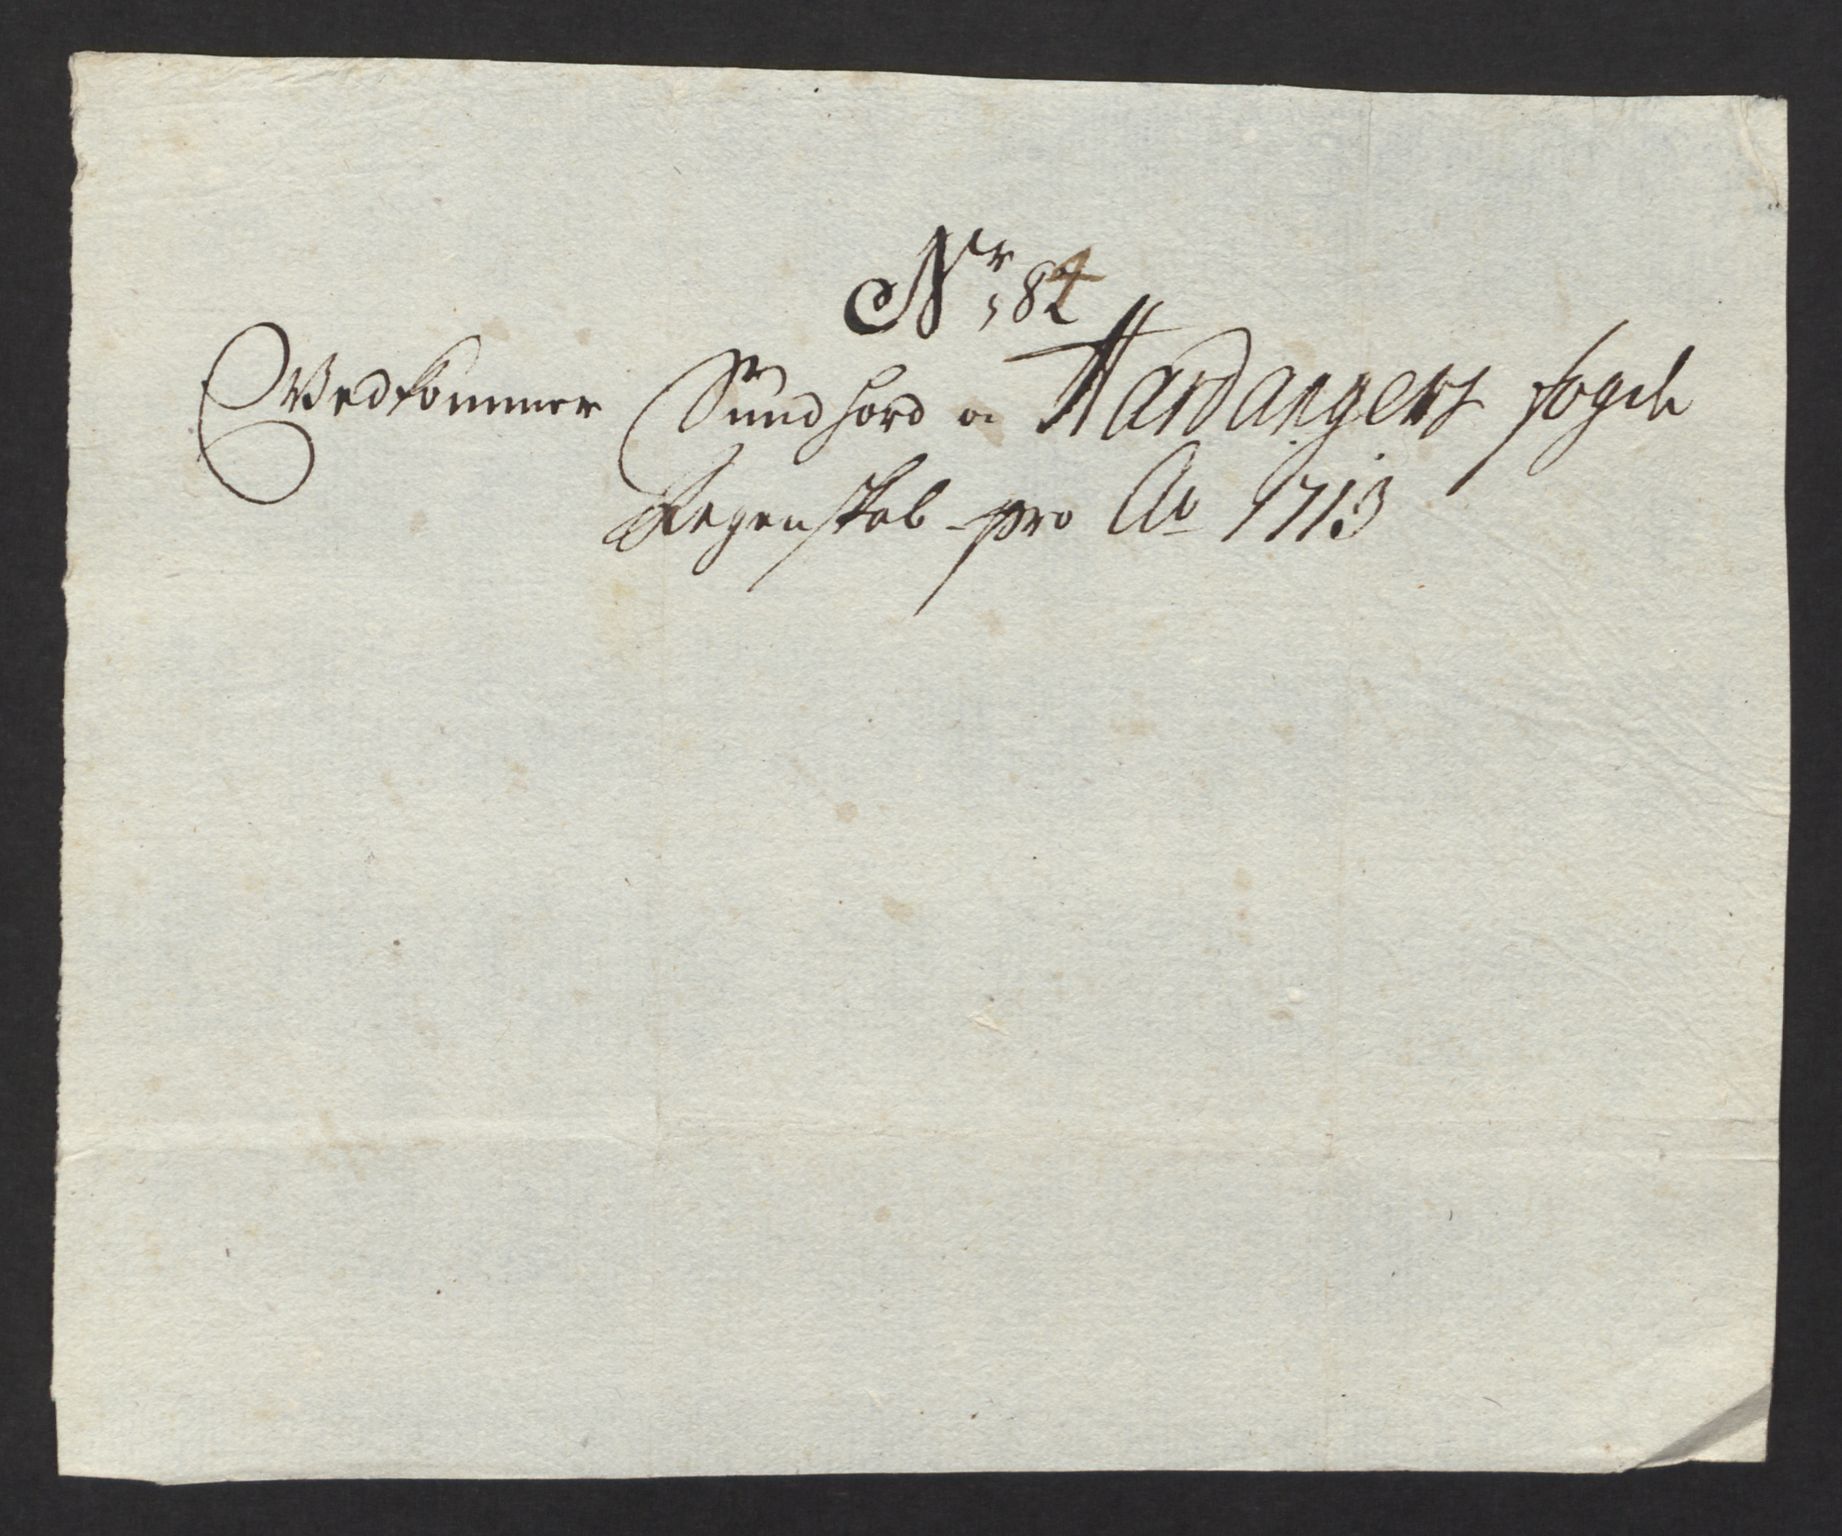 Nr 84
Vedkommer Sundhord oc Hardangers fogde
Regenskab pro Ao 1713